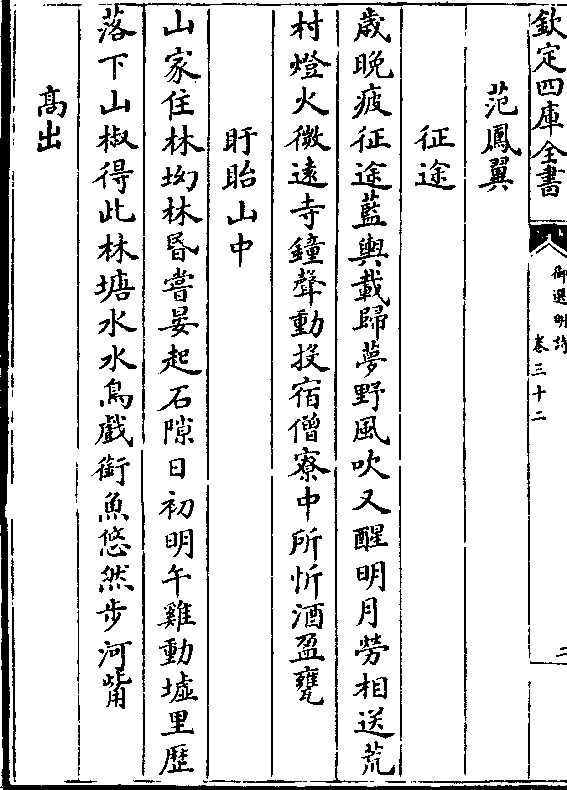 欽定四庫全書
御選明詩
卷三十二
二
范鳳翼
征途
歲晚疲征途藍輿載歸夢野風吹又醒明月勞相送荒
村燈火微遠寺鐘聲動投宿僧寮中所忻酒盈甕
盱眙山中
山家住林坳林昬嘗晏起石隙日初明午雞動墟里歴
落下山椒得此林塘水水鳥戲銜魚悠然步河觜
髙出